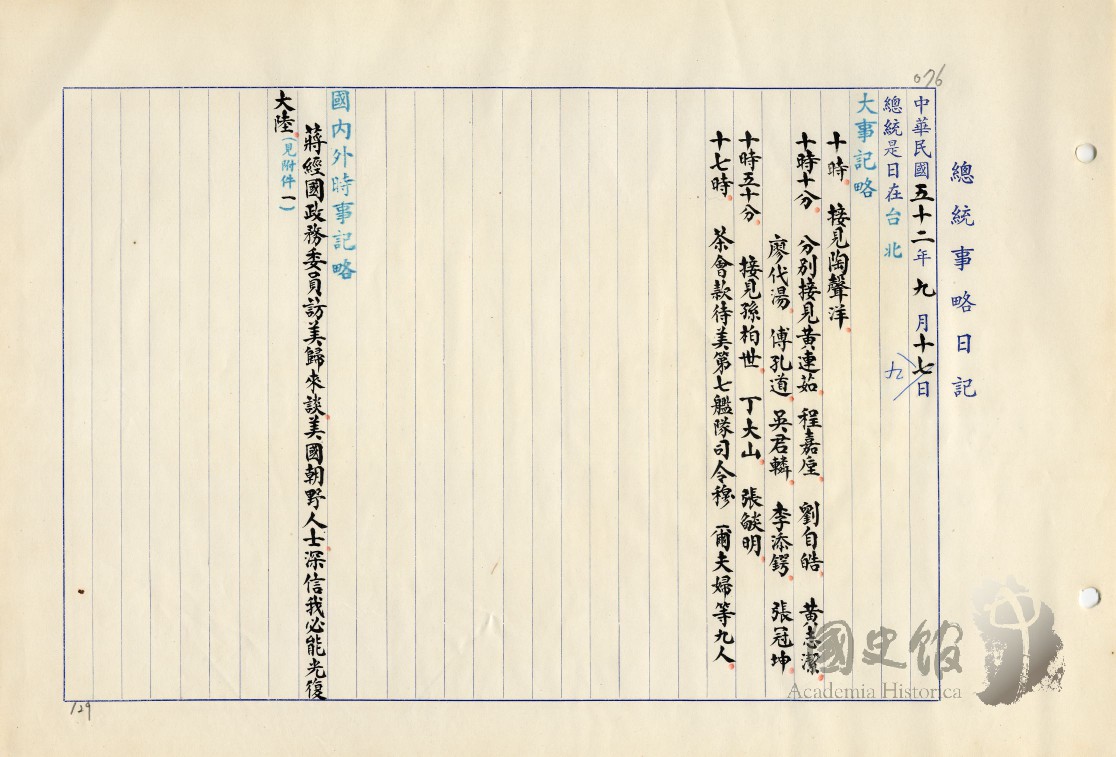 076
總統事略日記
中華民國五十二年九月十七日
總統是日在台北
九
大事記略
十時 接見陶聲洋
十時十分 分別接見黃連茹 程嘉垕 劉自皓 黃志潔
廖代湯 傅孔道 吳君轔 李添鍔 張冠坤
十時五十分 接見孫柏世 丁大山 張毓明
十七時 茶會款待美第七艦隊司令穆爾夫婦等九人
國內外時事記略
蔣經國政務委員訪美歸來談美國朝野人士深信我必能光復
大陸(見附件一)
129
國史館
Academia Historica